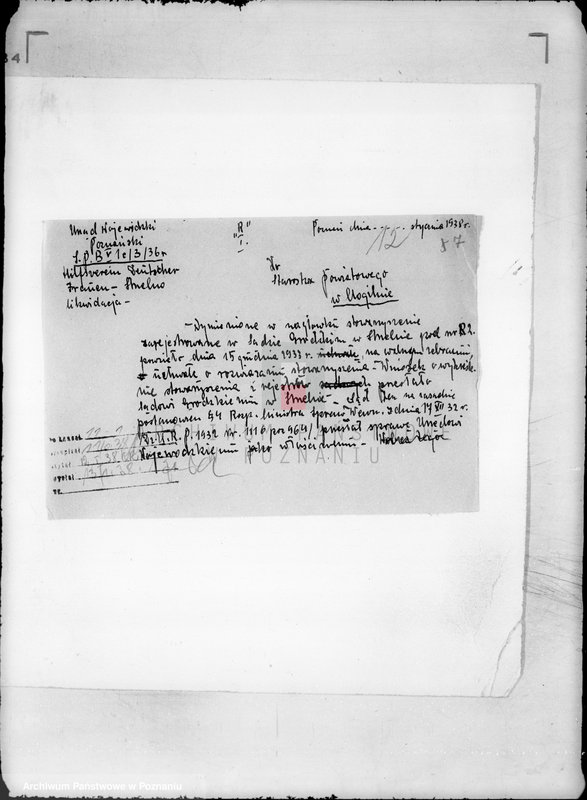 Urząd Wojewódzki
Poznański
L.P.B.V 1c/3/36 r
Hilfsverein Deutscher
Frauen - Strelno
likwidacja -
"R"
Poznań dnia 12 stycznia 1938 r.
87
Starosta Powiatowego
w Mogilnie
- Wymienione w nagłówku stowarzyszenie
zarejestrowane w Sądzie Grodzkim w Strzelnie pod nr R 2.
powzięło dnia 15 grudnia 1933 r. na walnym zebraniu
uchwałę o rozwiązaniu stowarzyszenia - Wniosek o wykreśle-
nie stowarzyszenia z rejestrów przesłało
Sądowi Grodzkiemu w Strzelnie. Sąd ten na zasadzie
postanowień § 4 Rozp. Ministra Spraw Wewn. z dnia 17 XII 32 r.
/Dz.U.R.P. 1932 nr. 116 poz 964/ przesłał sprawę Urzędowi
Wojewódzkiemu jako właściwemu.
ARCHIWUM PAŃSTWOWE
W POZNANIU
Archiwum Państwowe w Poznaniu